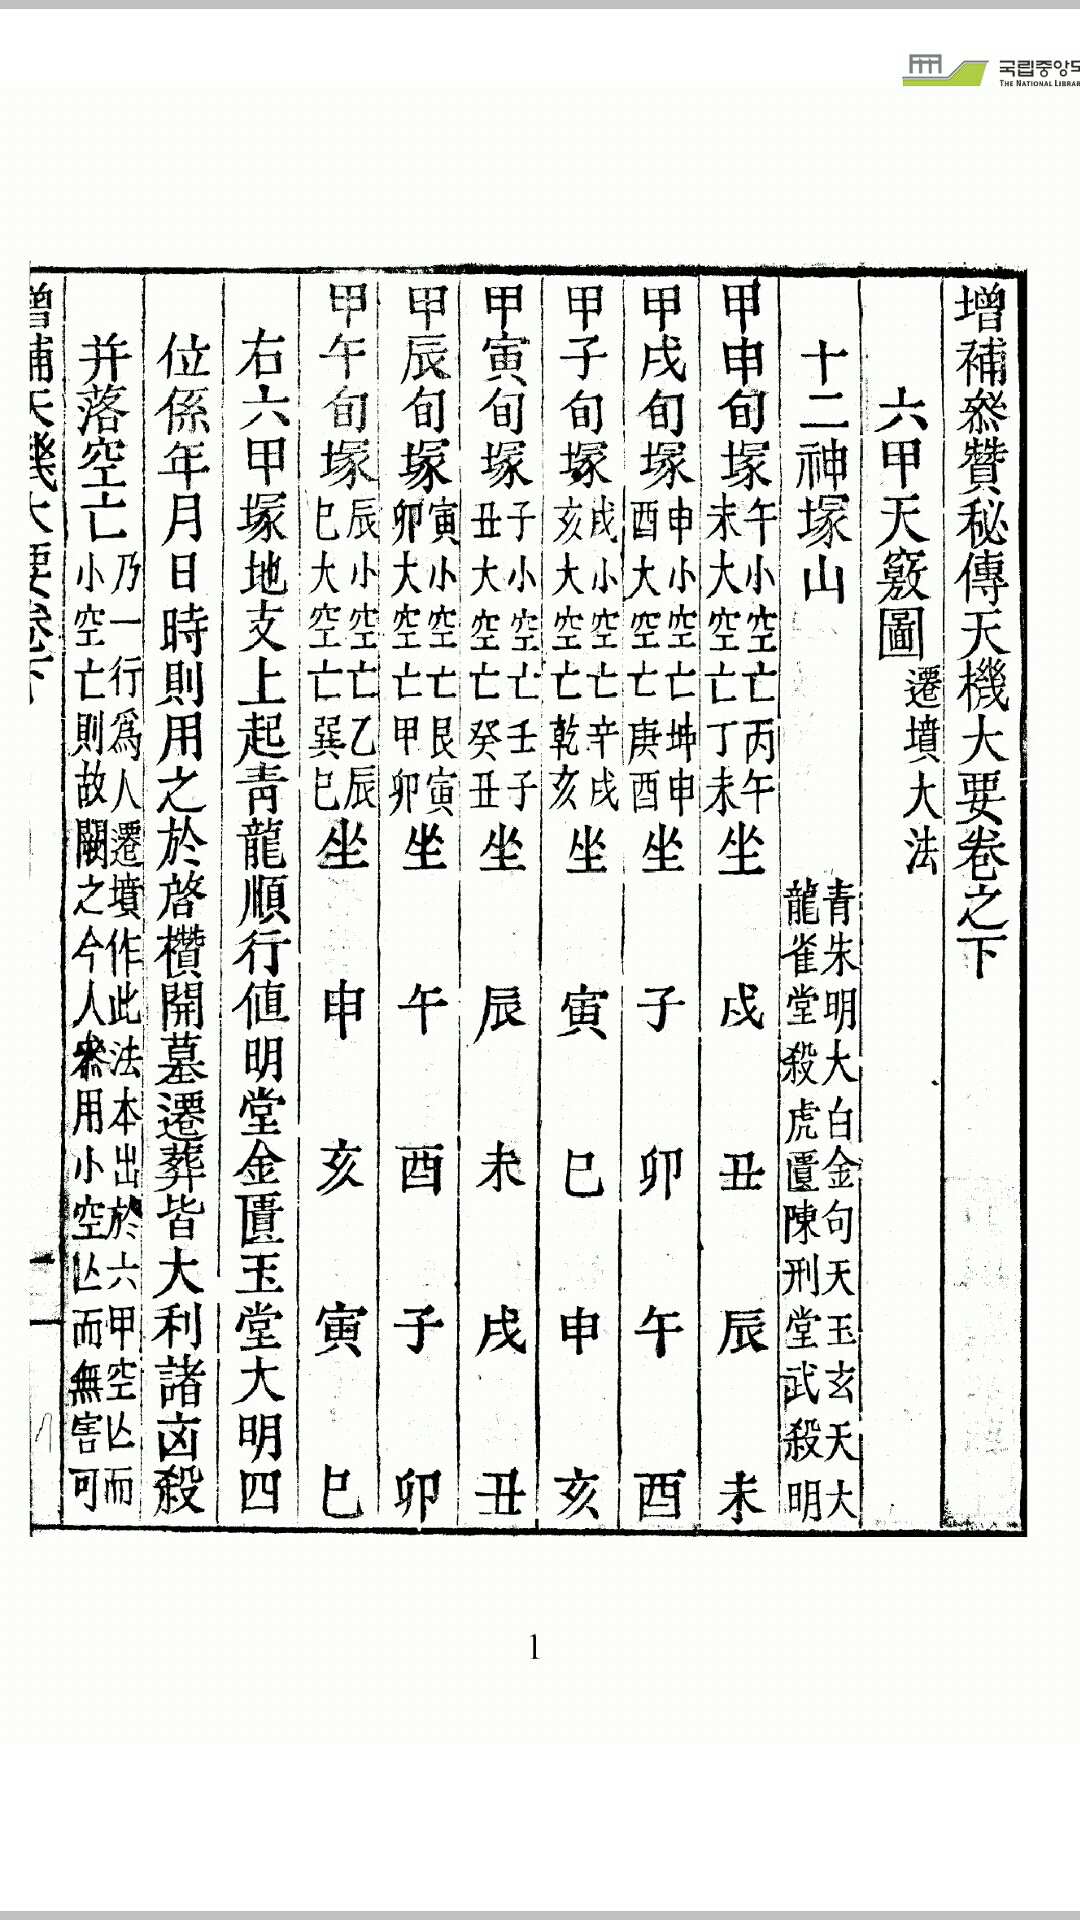 국립중앙도
THE NATIONAL LIBRAR
增補叅贊秘傳天機大要卷之下
六甲天竅圖 遷墳大法
十二神塚山 青朱明大白金句天玉玄天大
龍雀堂殺虎匱陳刑堂武殺明
甲申旬塚 午小空亡丙午
未大空亡丁未 坐 戌 丑 辰 未
甲戌旬塚 申小空亡坤申
酉大空亡庚酉 坐 子 卯 午 酉
甲子旬塚 戌小空亡辛戌
亥大空亡乾亥 坐 寅 巳 申 亥
甲寅旬塚 子小空亡壬子
丑大空亡癸丑 坐 辰 未 戌 丑
甲辰旬塚 寅小空亡艮寅
卯大空亡甲卯 坐 午 酉 子 卯
甲午旬塚 辰小空亡乙辰
巳大空亡巽巳 坐 申 亥 寅 巳
右六甲塚地支上起靑龍順行値明堂金匱玉堂大明四
位係年月日時則用之於啓欑開墓遷葬皆大利諸凶殺
并落空亡 乃一行爲人遷墳作此法本出於六甲空亾而
小空亡則故闕之今人叅用小空亾而無害可
增補天機大要卷下 一
1